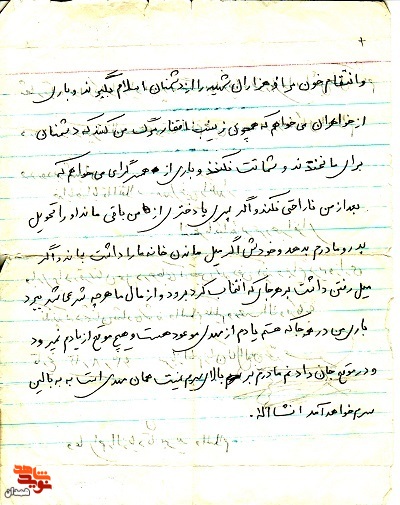 و انتقام خون من و هزاران شهید را از دشمنان اسلام بگیرند و باری
از خواهران می خواهم که همچون زینب افتخار بزرگ می کنند که دشمنان
برای ما نخندند و شماتت نکنند و باری از همسر گرامی می خواهم که
بعد از من ناراحتی نکند و اگر پسری یا دختری از من باقی ماند او را تحویل
پدر و مادرم بدهد و خودش اگر میل ماندن خانه ما را داشت بماند و اگر
میل رفتن داشت بر هر جای که انتخاب کرد برود و از مال ما هر چه شرعا شد ببرد
باری من در هر جا که هستم یادم از مهدی موعود هست و هیچ موقع از یادم نمی رود
و در موقع جان دادنم مادرم بر بالای سرم نیست همان مهدی است به بالین
سرم خواهد آمد انشااله.
نوید شاهد
همدان